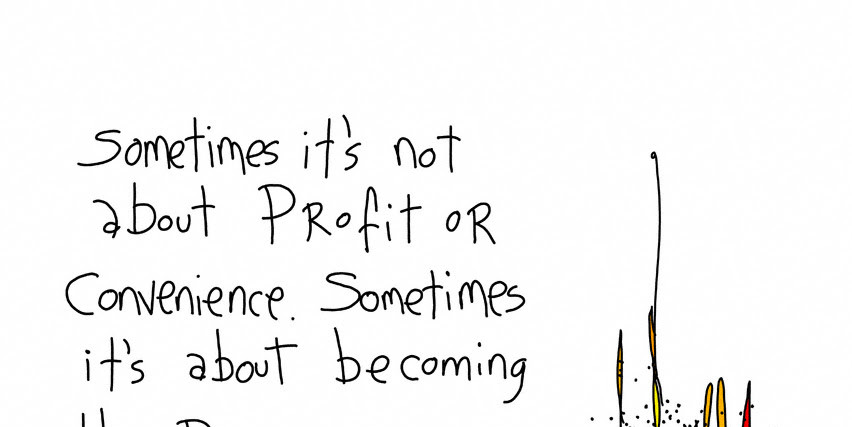 Sometimes it's not
about PRofit oR
Convenience. Sometimes
it's about becoming